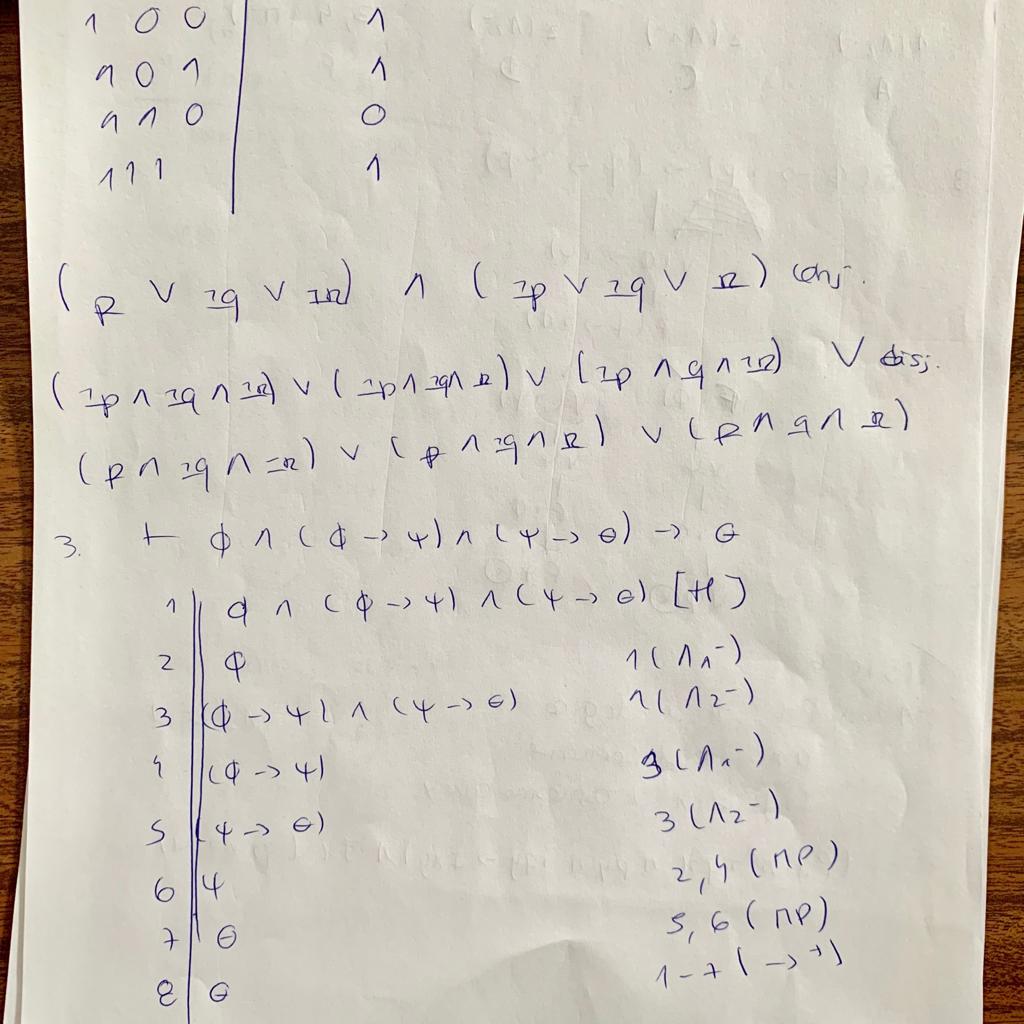 1 0 0 | 1
1 0 1 | 1
1 1 0 | 0
1 1 1 | 1
(p ∨ ¬q ∨ ¬r) ∧ (¬p ∨ ¬q ∨ r) conj.
(¬p ∧ ¬q ∧ ¬r) ∨ (¬p ∧ ¬q ∧ r) ∨ (¬p ∧ q ∧ ¬r) ∨ disj.
(p ∧ ¬q ∧ ¬r) ∨ (p ∧ ¬q ∧ r) ∨ (p ∧ q ∧ r)
3. ⊢ φ ∧ (φ → ψ) ∧ (ψ → θ) → θ
1 φ ∧ (φ → ψ) ∧ (ψ → θ) [H]
2 φ 1(∧1⁻)
3 (φ → ψ) ∧ (ψ → θ) 1(∧2⁻)
4 (φ → ψ) 3(∧1⁻)
5 (ψ → θ) 3(∧2⁻)
6 ψ 2,4 (MP)
7 θ 5,6 (MP)
8 θ 1-7 (→⁺)